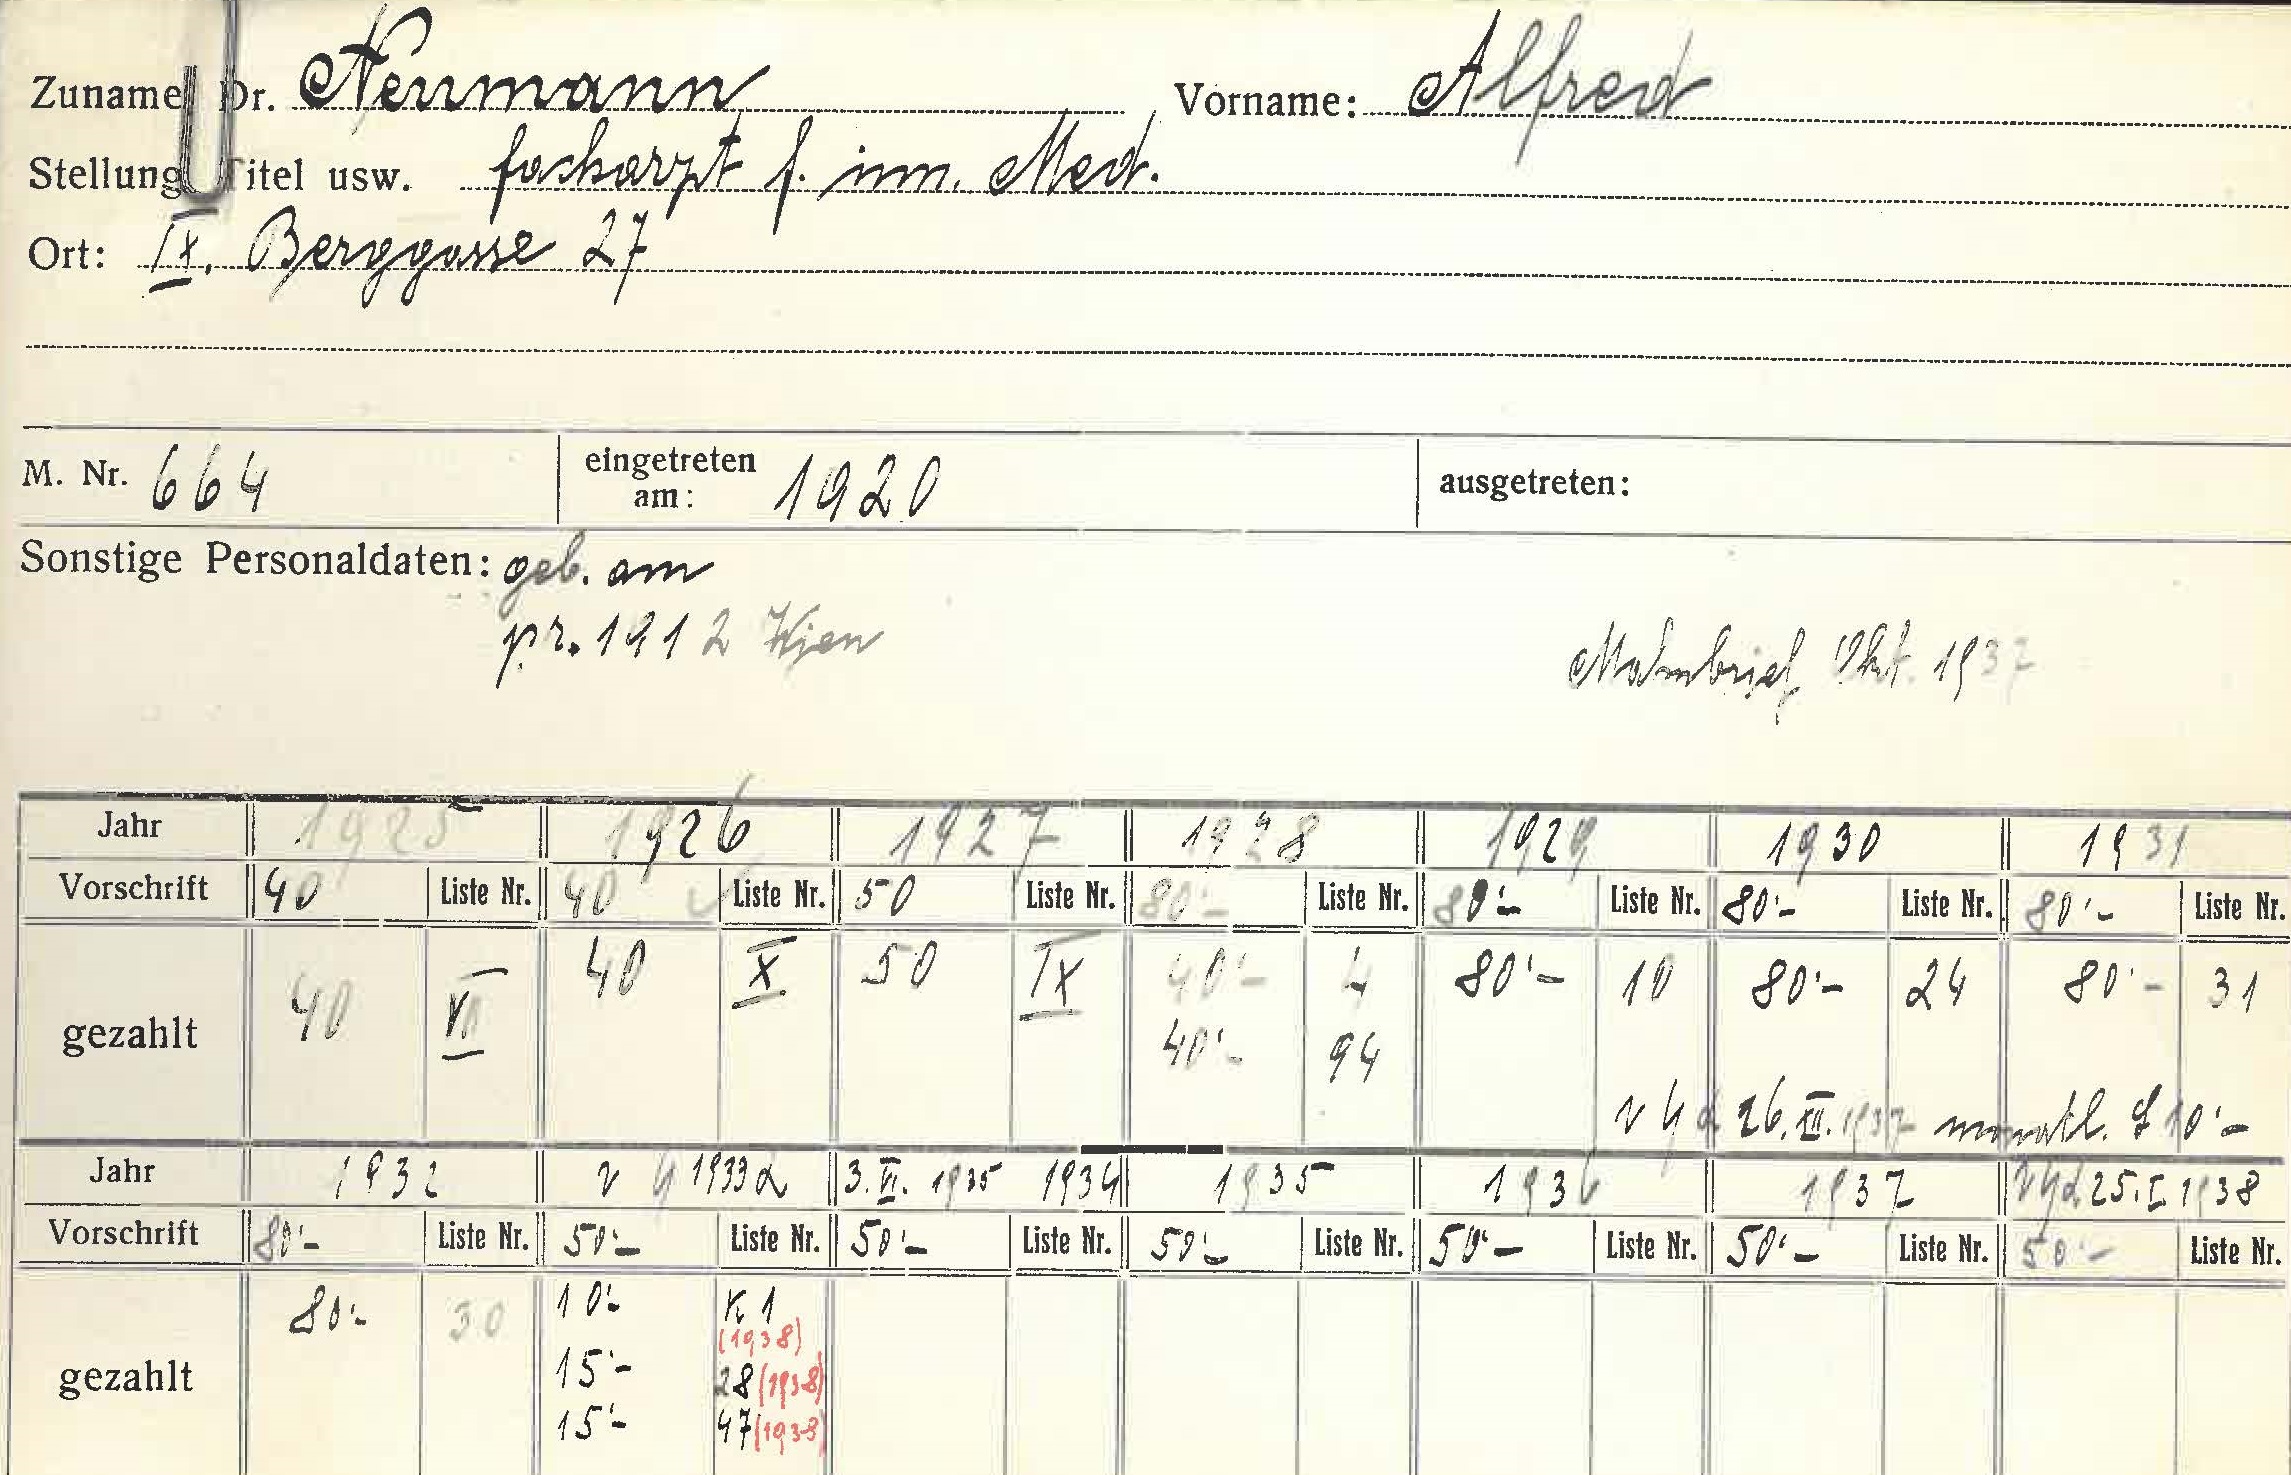 Zuname Dr. Neumann Vorname: Alfred
Stellung Titel usw. Facharzt f. inn. Med.
Ort: IX. Berggasse 27
M. Nr. 664 eingetreten am: 1920 ausgetreten:
Sonstige Personaldaten: geb. am
pr. 1912 Wien
Mahnbrief Okt. 1937
Jahr 1925 1926 1927 1928 1929 1930 1931
Vorschrift 40 Liste Nr. 40 Liste Nr. 50 Liste Nr. 80'- Liste Nr. 80'- Liste Nr. 80'- Liste Nr. 80'- Liste Nr.
gezahlt 40 VII 40 X 50 IX 40'- 4 80'- 10 80'- 24 80'- 31
40'- 94
26. XII. 1937 monatl. S 10'-
Jahr 1932 1933 3. VI. 1935 1934 1935 1936 1937 25. I. 1938
Vorschrift 80'- Liste Nr. 50'- Liste Nr. 50'- Liste Nr. 50'- Liste Nr. 50'- Liste Nr. 50'- Liste Nr. 50'- Liste Nr.
gezahlt 80'- 30 10'- K 1
(1938)
15'- 28 (1938)
15'- 47 (1938)